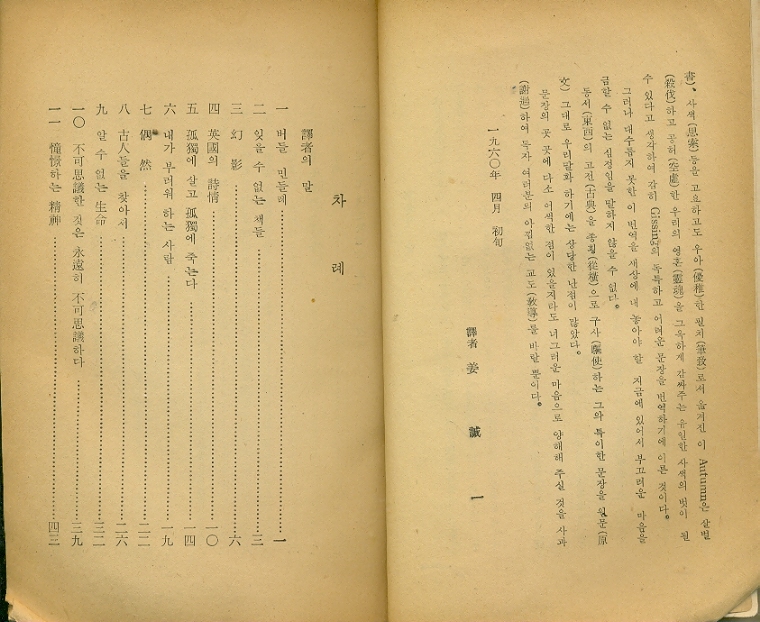 書), 사색(思索)등을 고요하고도 우아(優雅)한 필치(筆致)로서 옮겨진 이 Autumn은 살벌
(殺伐)하고 공허(空虛)한 우리의 영혼(靈魂)을 그윽하게 감싸주는 유일한 사색의 벗이 될
수 있다고 생각하여 감히 Gissing의 독특하고 어려운 문장을 번역하기에 이른 것이다.
그러나 대수롭지 못한 이 번역을 세상에 내 놓아야 할 지금에 있어서 부끄러운 마음을
금할 수 없는 심정임을 말하지 않을 수 없다.
동서(東西)의 고전(古典)을 종횡(從橫)으로 구사(驅使)하는 그의 특이한 문장을 원문(原
文) 그대로 우리말화 하기에는 상당한 난점이 많았다.
문장의 곳 곳에 다소 어색한 점이 있을지라도 너그러운 마음으로 양해해 주실 것을 사과
(謝過)하여 독자 여러분의 아낌없는 교도(敎導)를 바랄 뿐이다.
一九六○年 四月 初旬
譯者 姜 誠 一
차 례
譯者의 말
一 버들 민들레 一
二 잊을 수 없는 책들 三
三 幻影 六
四 英國의 詩情 一○
五 孤獨에 살고 孤獨에 죽는다 一四
六 내가 부러워 하는 사람 一九
七 偶然 二二
八 古人들을 찾아서 二六
九 알 수 없는 生命 三二
一○ 不可思議한 것은 永遠히 不可思議하다 三九
一一 憧憬하는 精神 四三